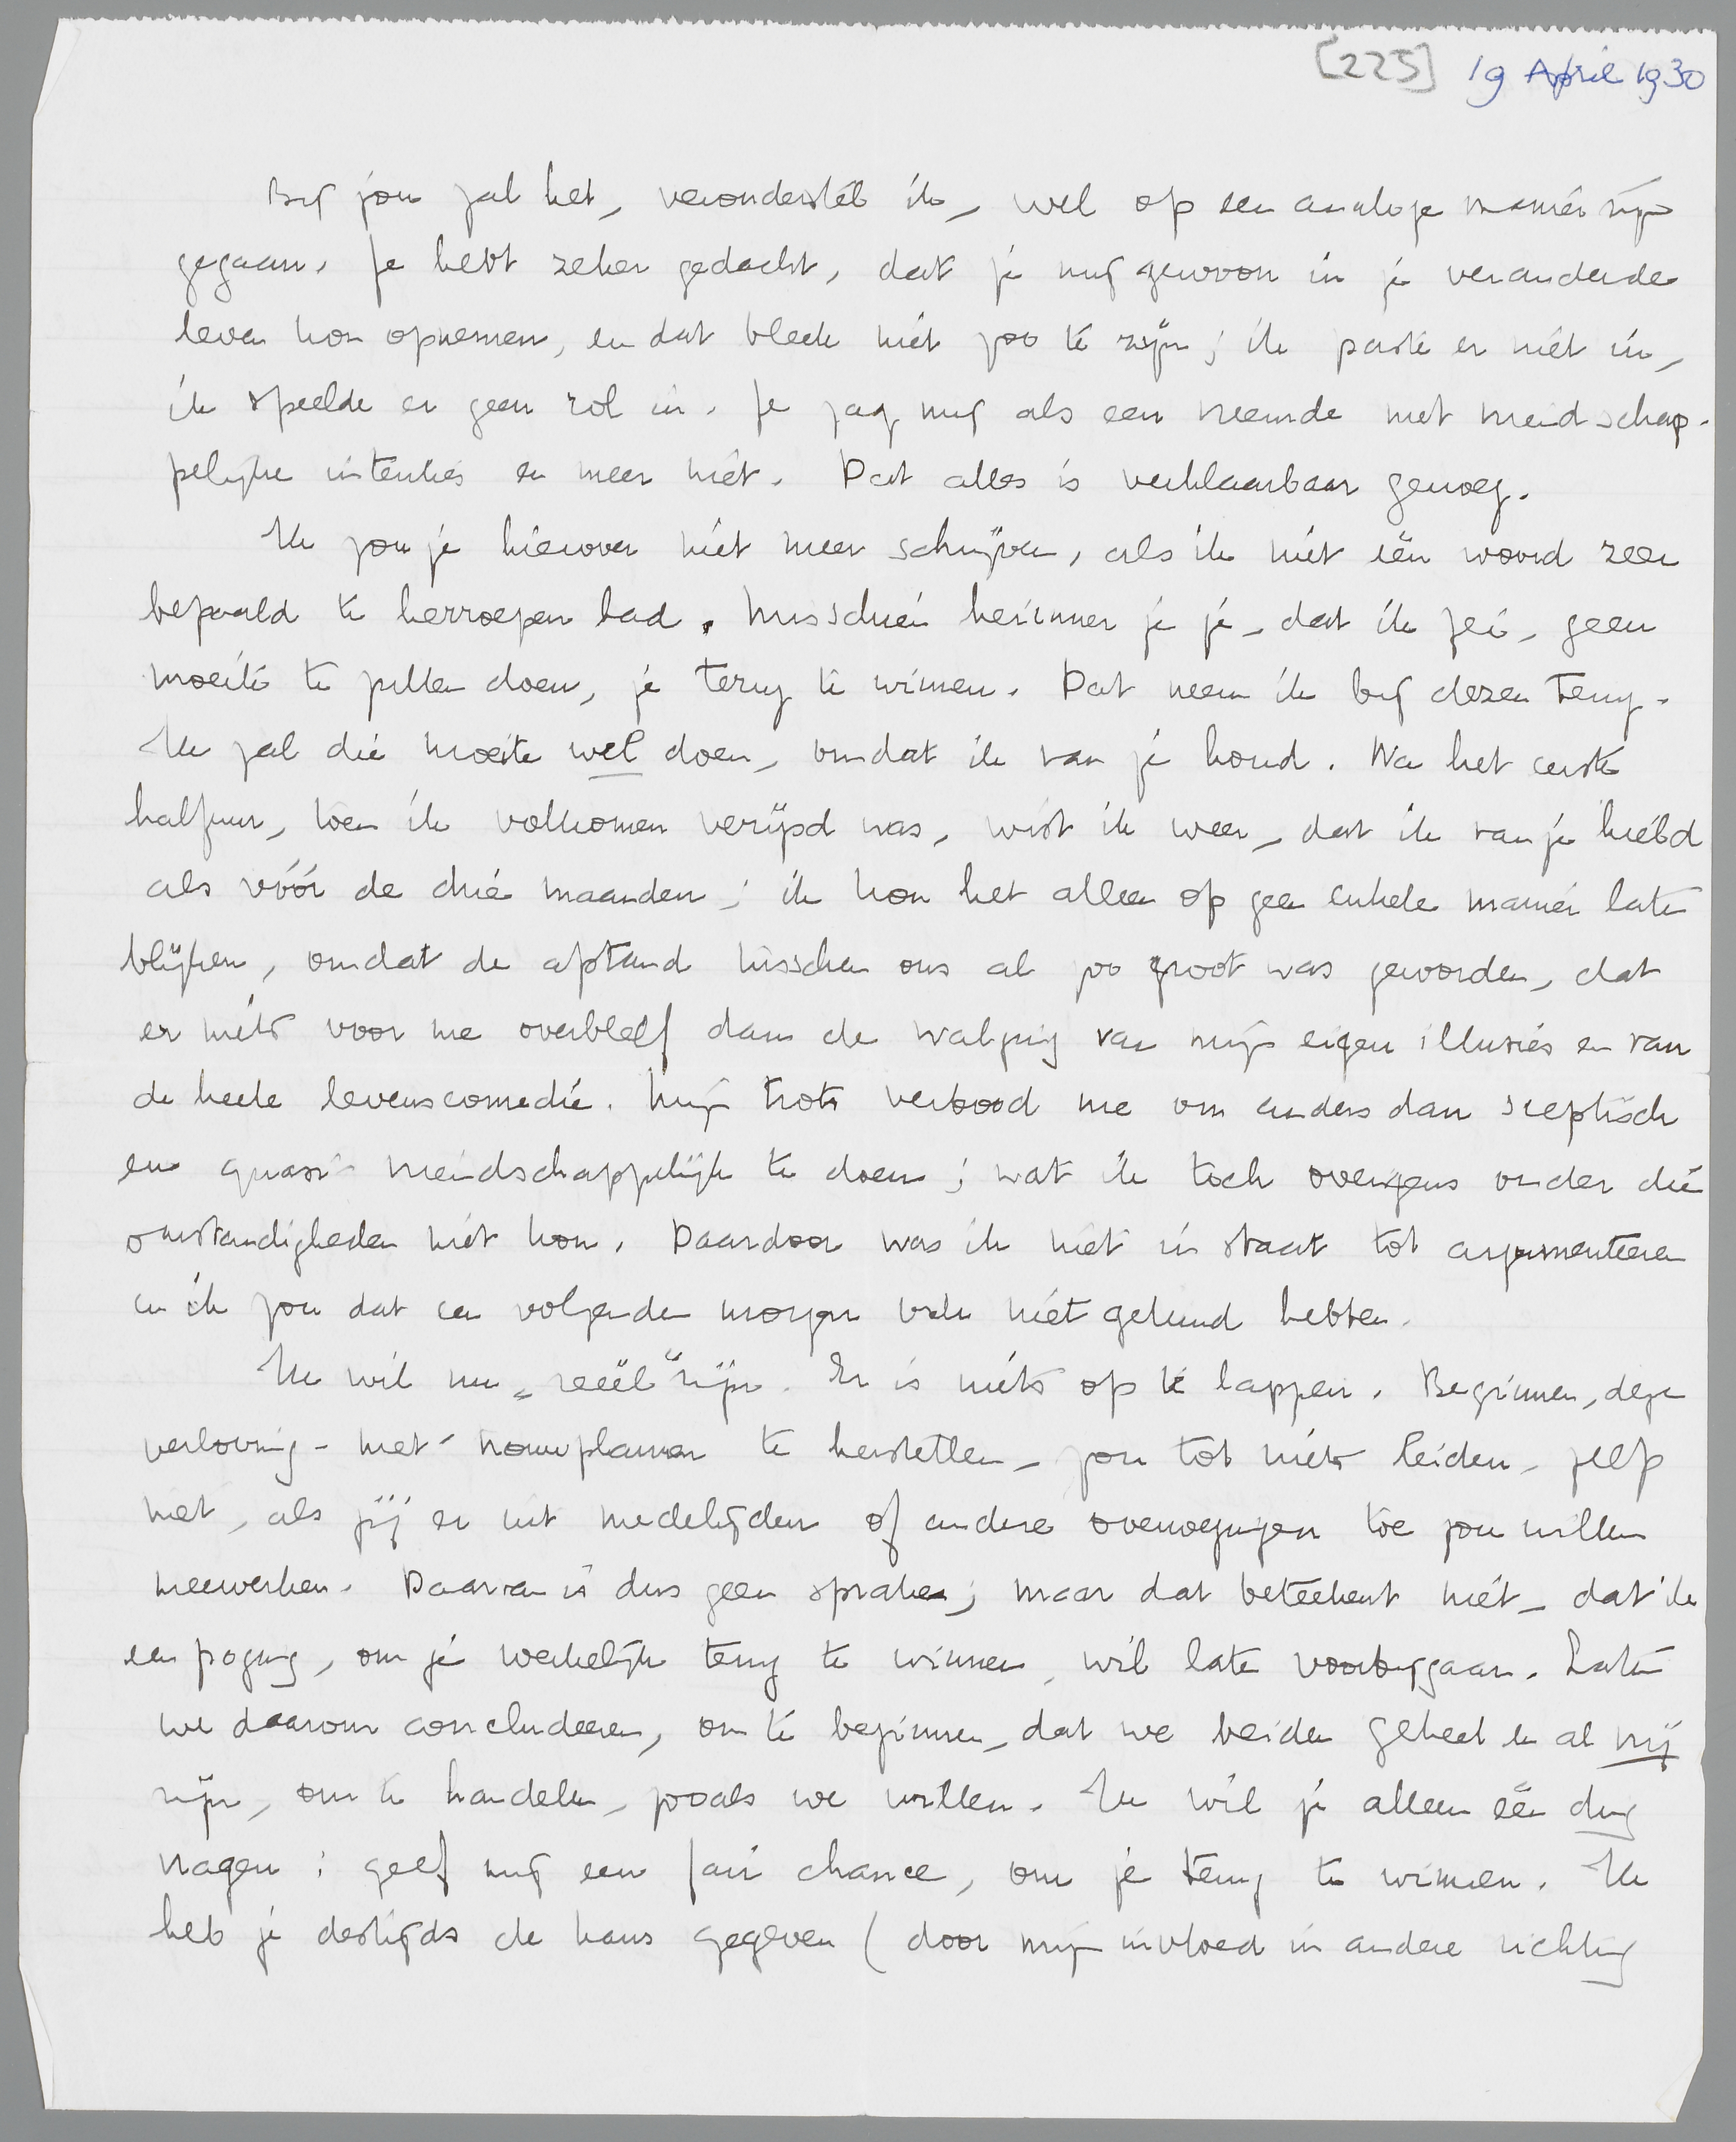 [225] 19 April 1930
Bij jou zal het, veronderstel ik, wel op een analoge manier zijn
gegaan. Je hebt zeker gedacht, dat je mij gewoon in je veranderde
leven kon opnemen, en dat bleek niet zoo te zijn; ik paste er niet in,
ik speelde er geen rol in. Je zag mij als een vreemde met vriendschap-
pelijke intenties en meer niet. Dat alles is verklaarbaar genoeg.
Ik zou je hierover niet meer schrijven, als ik niet één woord zeer
bepaald te herroepen had. Misschien herinner je je, dat ik zei, geen
moeite te zullen doen, je terug te winnen. Dat neem ik bij dezen terug.
Ik zal die moeite wel doen, omdat ik van je houd. Na het eerste
halfuur, toen ik volkomen verijsd was, wist ik weer, dat ik van je hield
als vóór de drie maanden; ik kon het alleen op geen enkele manier laten
blijken, omdat de afstand tusschen ons al zoo groot was geworden, dat
er niets voor me overbleef dan de walging van mijn eigen illusies en van
de heele levenscomedie. Mijn trots verbood me om anders dan sceptisch
en quasi-vriendschappelijk te doen; wat ik toch overigens onder die
omstandigheden niet kon. Daardoor was ik niet in staat tot argumenteeren
en ik zou dat een volgenden morgen ook niet gekund hebben.
Ik wil nu „reëel" zijn. Er is niets op te lappen. Beginnen, deze
verloving-met-trouwplannen te herstellen, zou tot niets leiden, zelfs
niet, als jij er uit medelijden of andere overwegingen toe zou willen
meewerken. Daarvan is dus geen sprake; maar dat beteekent niet, dat ik
een poging, om je werkelijk terug te winnen, wil laten voorbijgaan. Laten
we daarom concludeeren, om te beginnen, dat we beiden geheel en al vrij
zijn, om te handelen, zooals we willen. Ik wil je alleen één ding
vragen: geef mij een fair chance, om je terug te winnen. Ik
heb je destijds de kans gegeven (door mijn invloed in andere richting